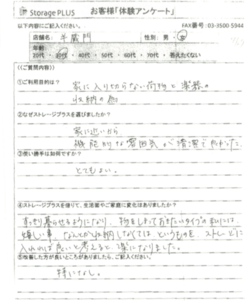 Storage PLUS お客様「体験アンケート」
以下内容にご記入ください。 FAX番号：03-3500-5944
店舗名： 半蔵門 性別： 男・
年齢
20代・30代・40代・50代・60代・70代・答えたくない
《ご質問内容》
①ご利用目的は？
家に入りきらない荷物と
収納の為
②なぜストレージプラスを選びましたか？
家に近いから
機能的な雰囲気が清潔でよかった
③使い勝手は如何ですか？
とてもよい。
④ストレージプラスを使って、生活面やご家庭に変化はありましたか？
すっきり暮せるようになり、物をしまっておきたいタイプの私には
嬉しい事 なんでも収納しなくては というものを ストレージに
入れれば良いと考えると 楽になりました。
⑤他社した方が良いところがありましたら、ご記入ください。
特になし。